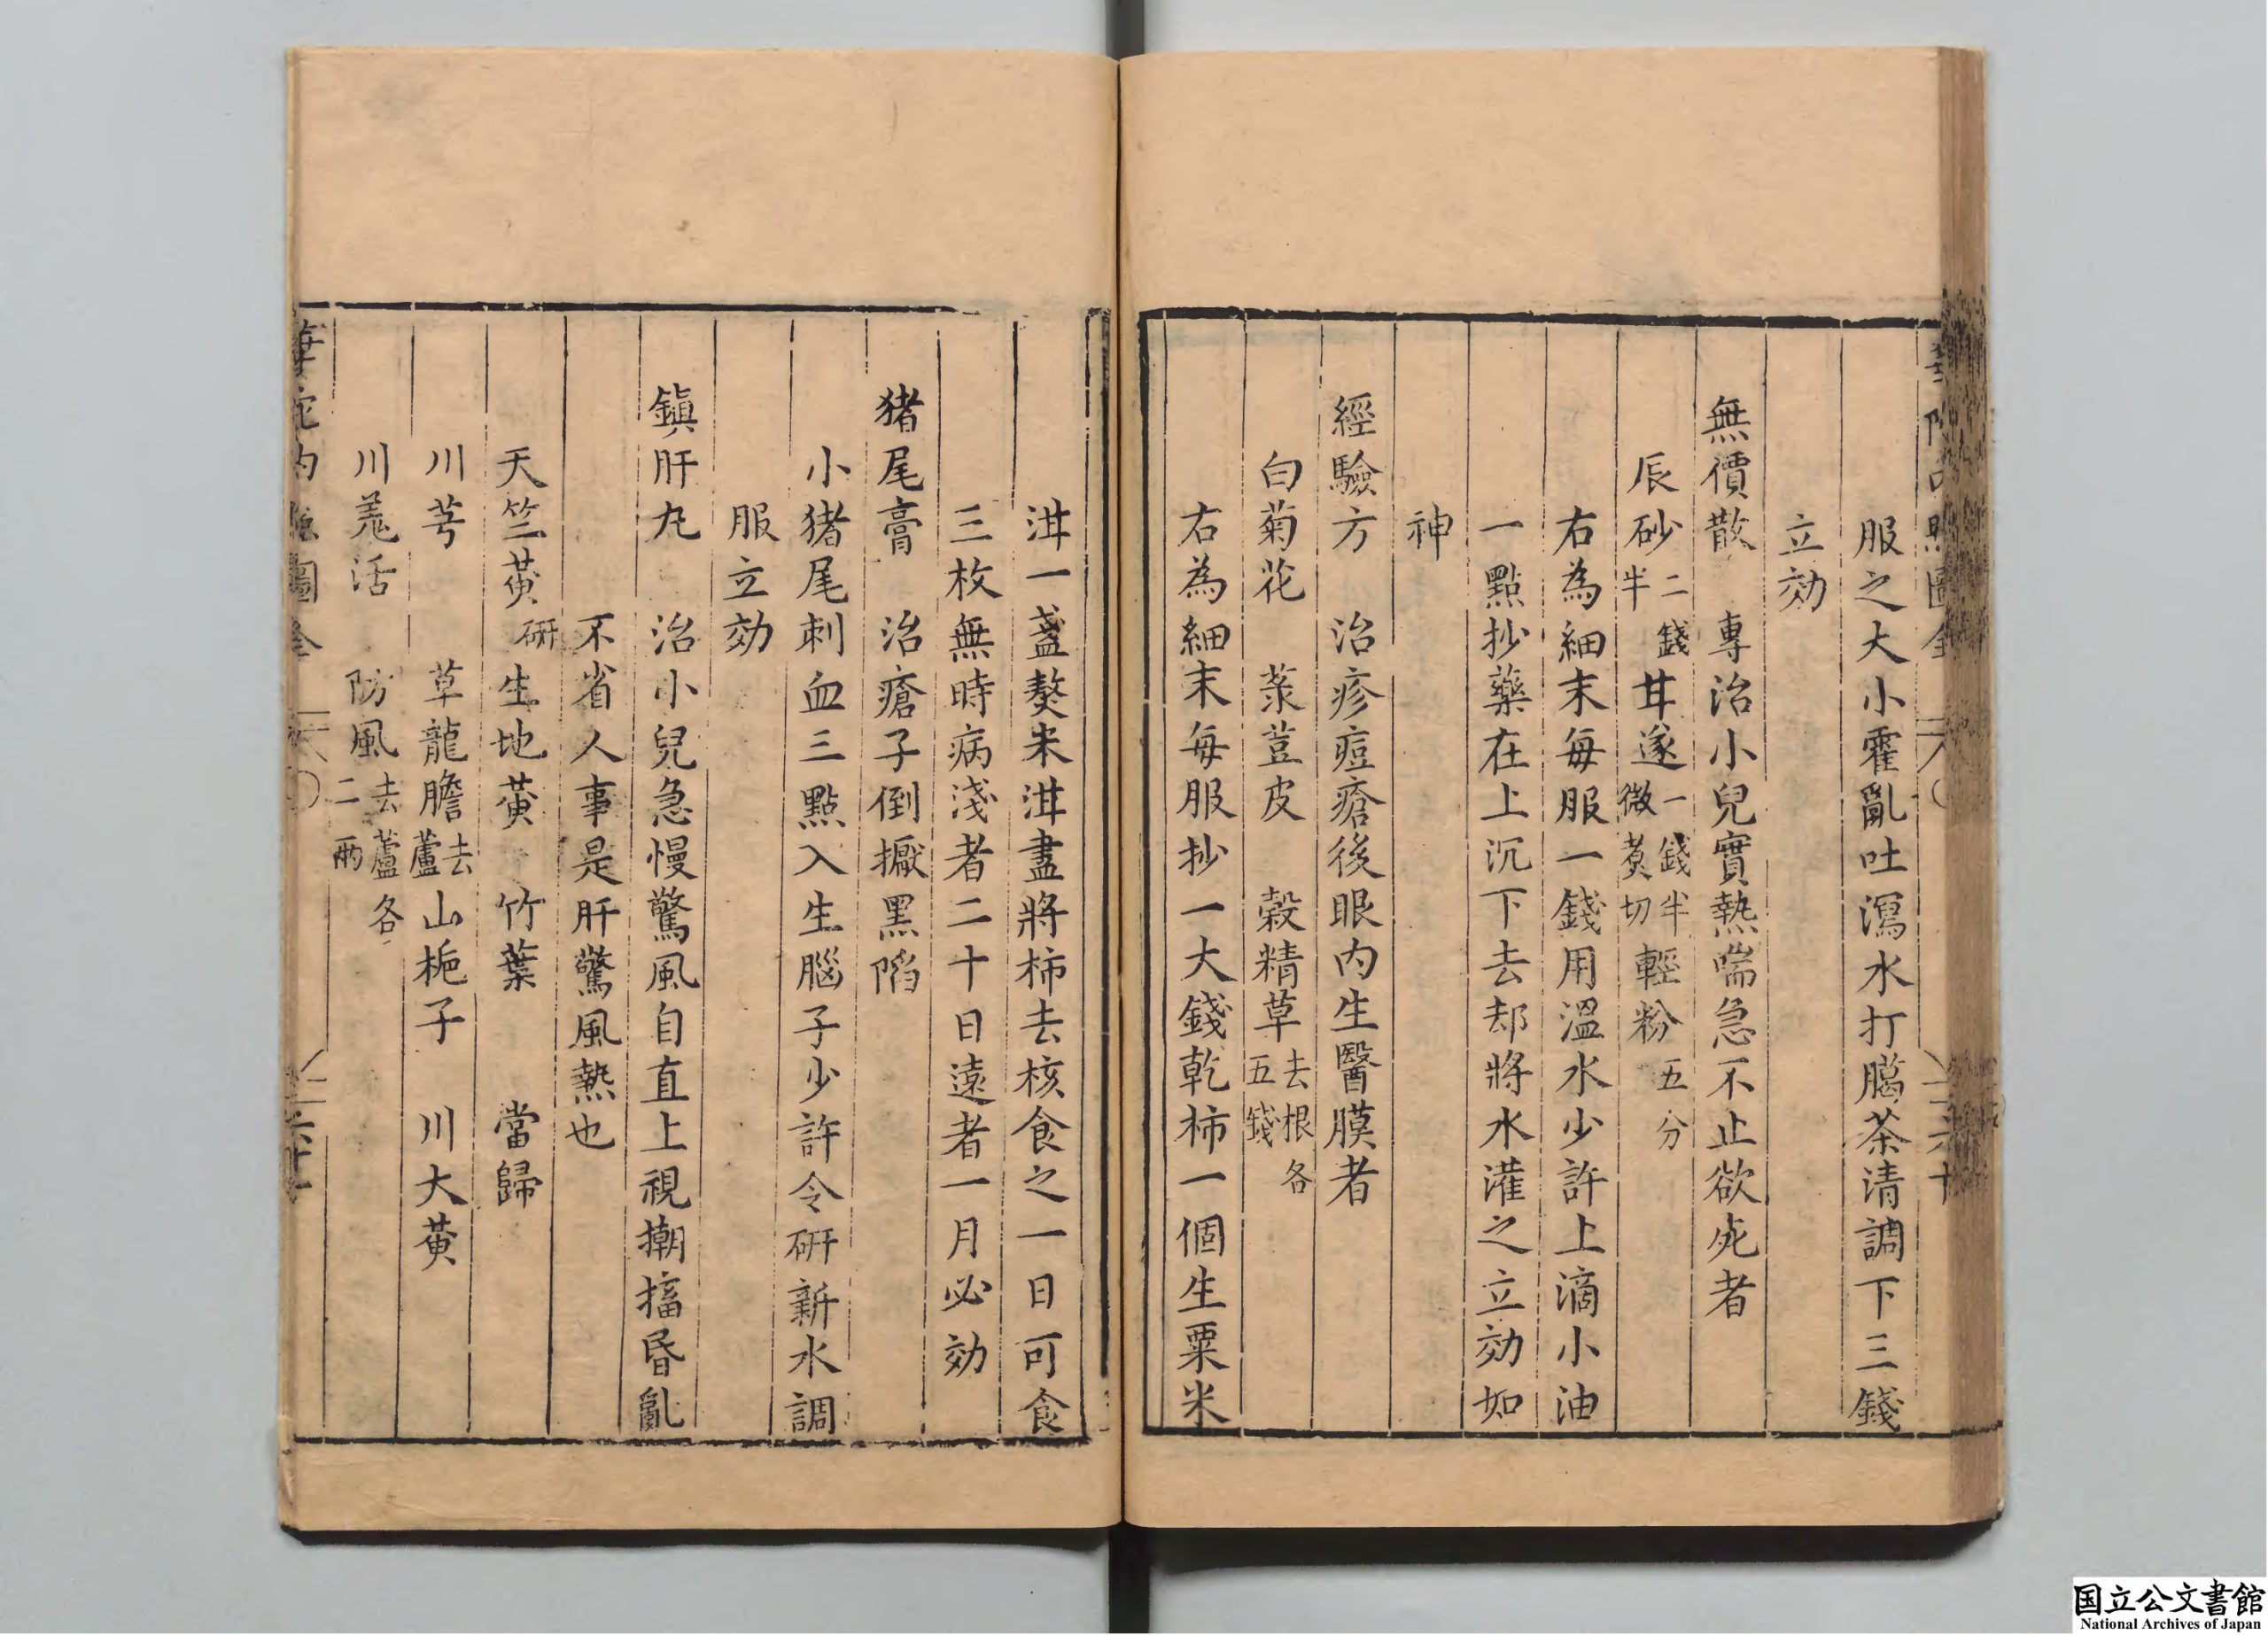 服之大小霍亂吐瀉水打臈茶清調下三錢
立効
無價散　專治小兒實熱喘急不止欲死者
辰砂二錢半甘遂一錢半微煑切輕粉五分
右為細末每服一錢用溫水少許上滴小油
一點抄藥在上沉下去却將水灌之立効如
神
經驗方　治疹痘瘡後眼内生醫膜者
白菊花　菉荳皮　榖精草去根各五錢
右為細末每服抄一大錢乾柿一個生粟米
泔一盞熬米泔盡將柿去核食之一日可食
三枚無時病淺者二十日遠者一月必効
猪尾膏　治瘡子倒擫黑陷
小猪尾刺血三點入生腦子少許令研新水調
服立効
鎮肝丸　治小兒急慢驚風自直上視搠搐昏亂
不省人事是肝驚風熱也
天竺黃研生地黃　竹葉　當歸
川芎　草龍膽去蘆山梔子　川大黃
川羗活　防風去蘆各二兩
華佗内照圖全
国立公文書館
National Archives of Japan